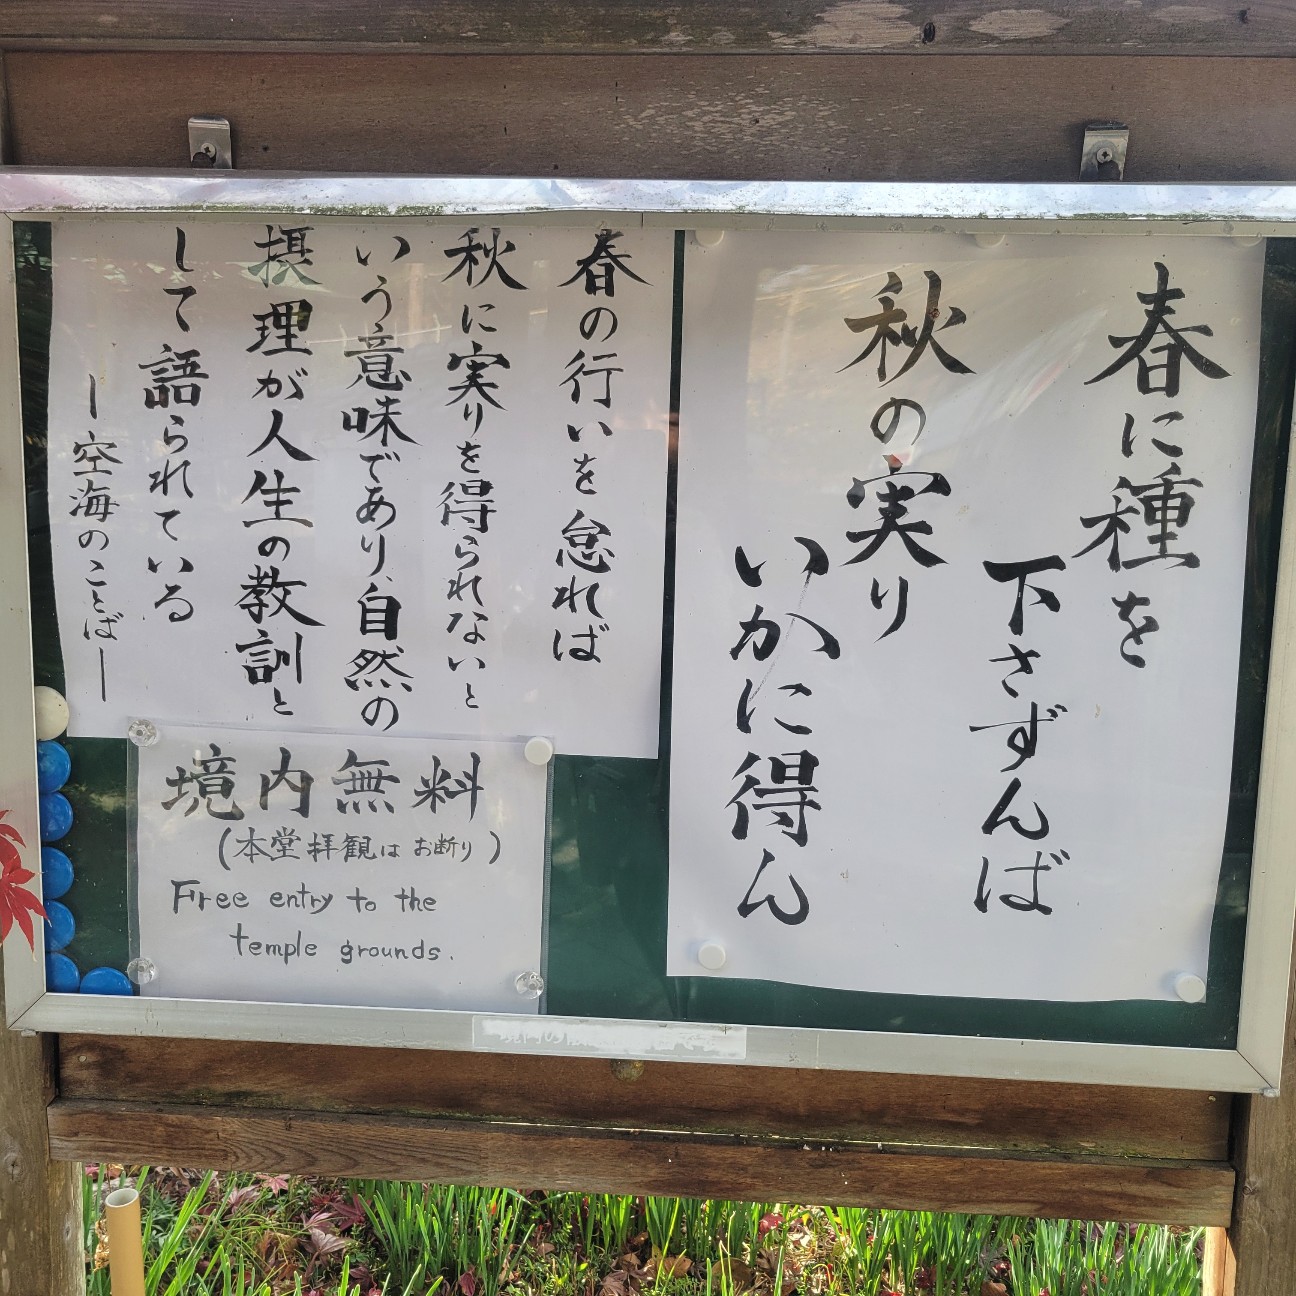 春に種を
下さずんば
秋の実り
いかに得ん
春の行いを怠れば
秋に実りを得られないと
いう意味であり、自然の
摂理が人生の教訓と
して語られている
ー空海のことばー
境内無料
(本堂拝観はお断り)
Free entry to the
temple grounds.